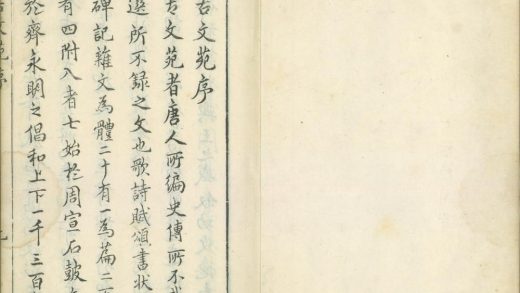 古文苑序
古文苑者唐人所編史傳所不
選所不録之文也歌詩賦頌書狀
碑記雜文為體二十有一為篇二
有四附入者七始於周宣石鼓
於齊永明之倡和上下一千三百
古文苑序